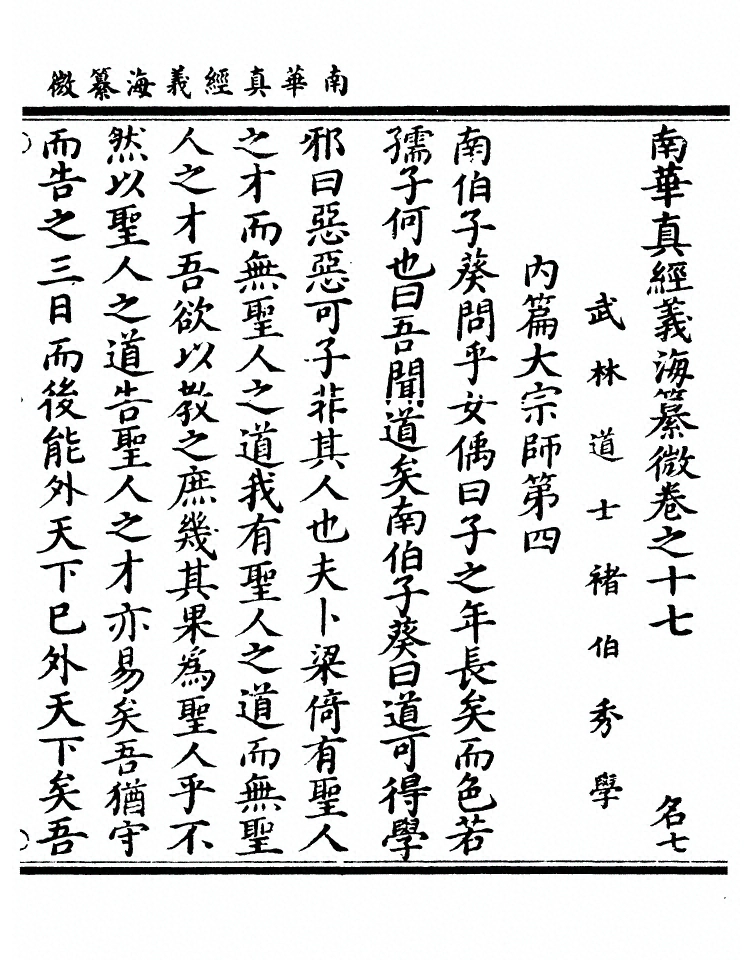 南華真經義海纂微
南華真經義海纂微卷之十七
名七
武林道士褚伯秀學
内篇大宗師第四
南伯子葵問乎女偊曰子之年長矣而色若
孺子何也曰吾聞道矣南伯子葵曰道可得學
邪曰惡惡可子非其人也夫卜梁倚有聖人
之才而無聖人之道我有聖人之道而無聖
人之才吾欲以教之庶幾其果爲聖人乎不
然以聖人之道告聖人之才亦易矣吾猶守
而告之三日而後能外天下巳外天下矣吾